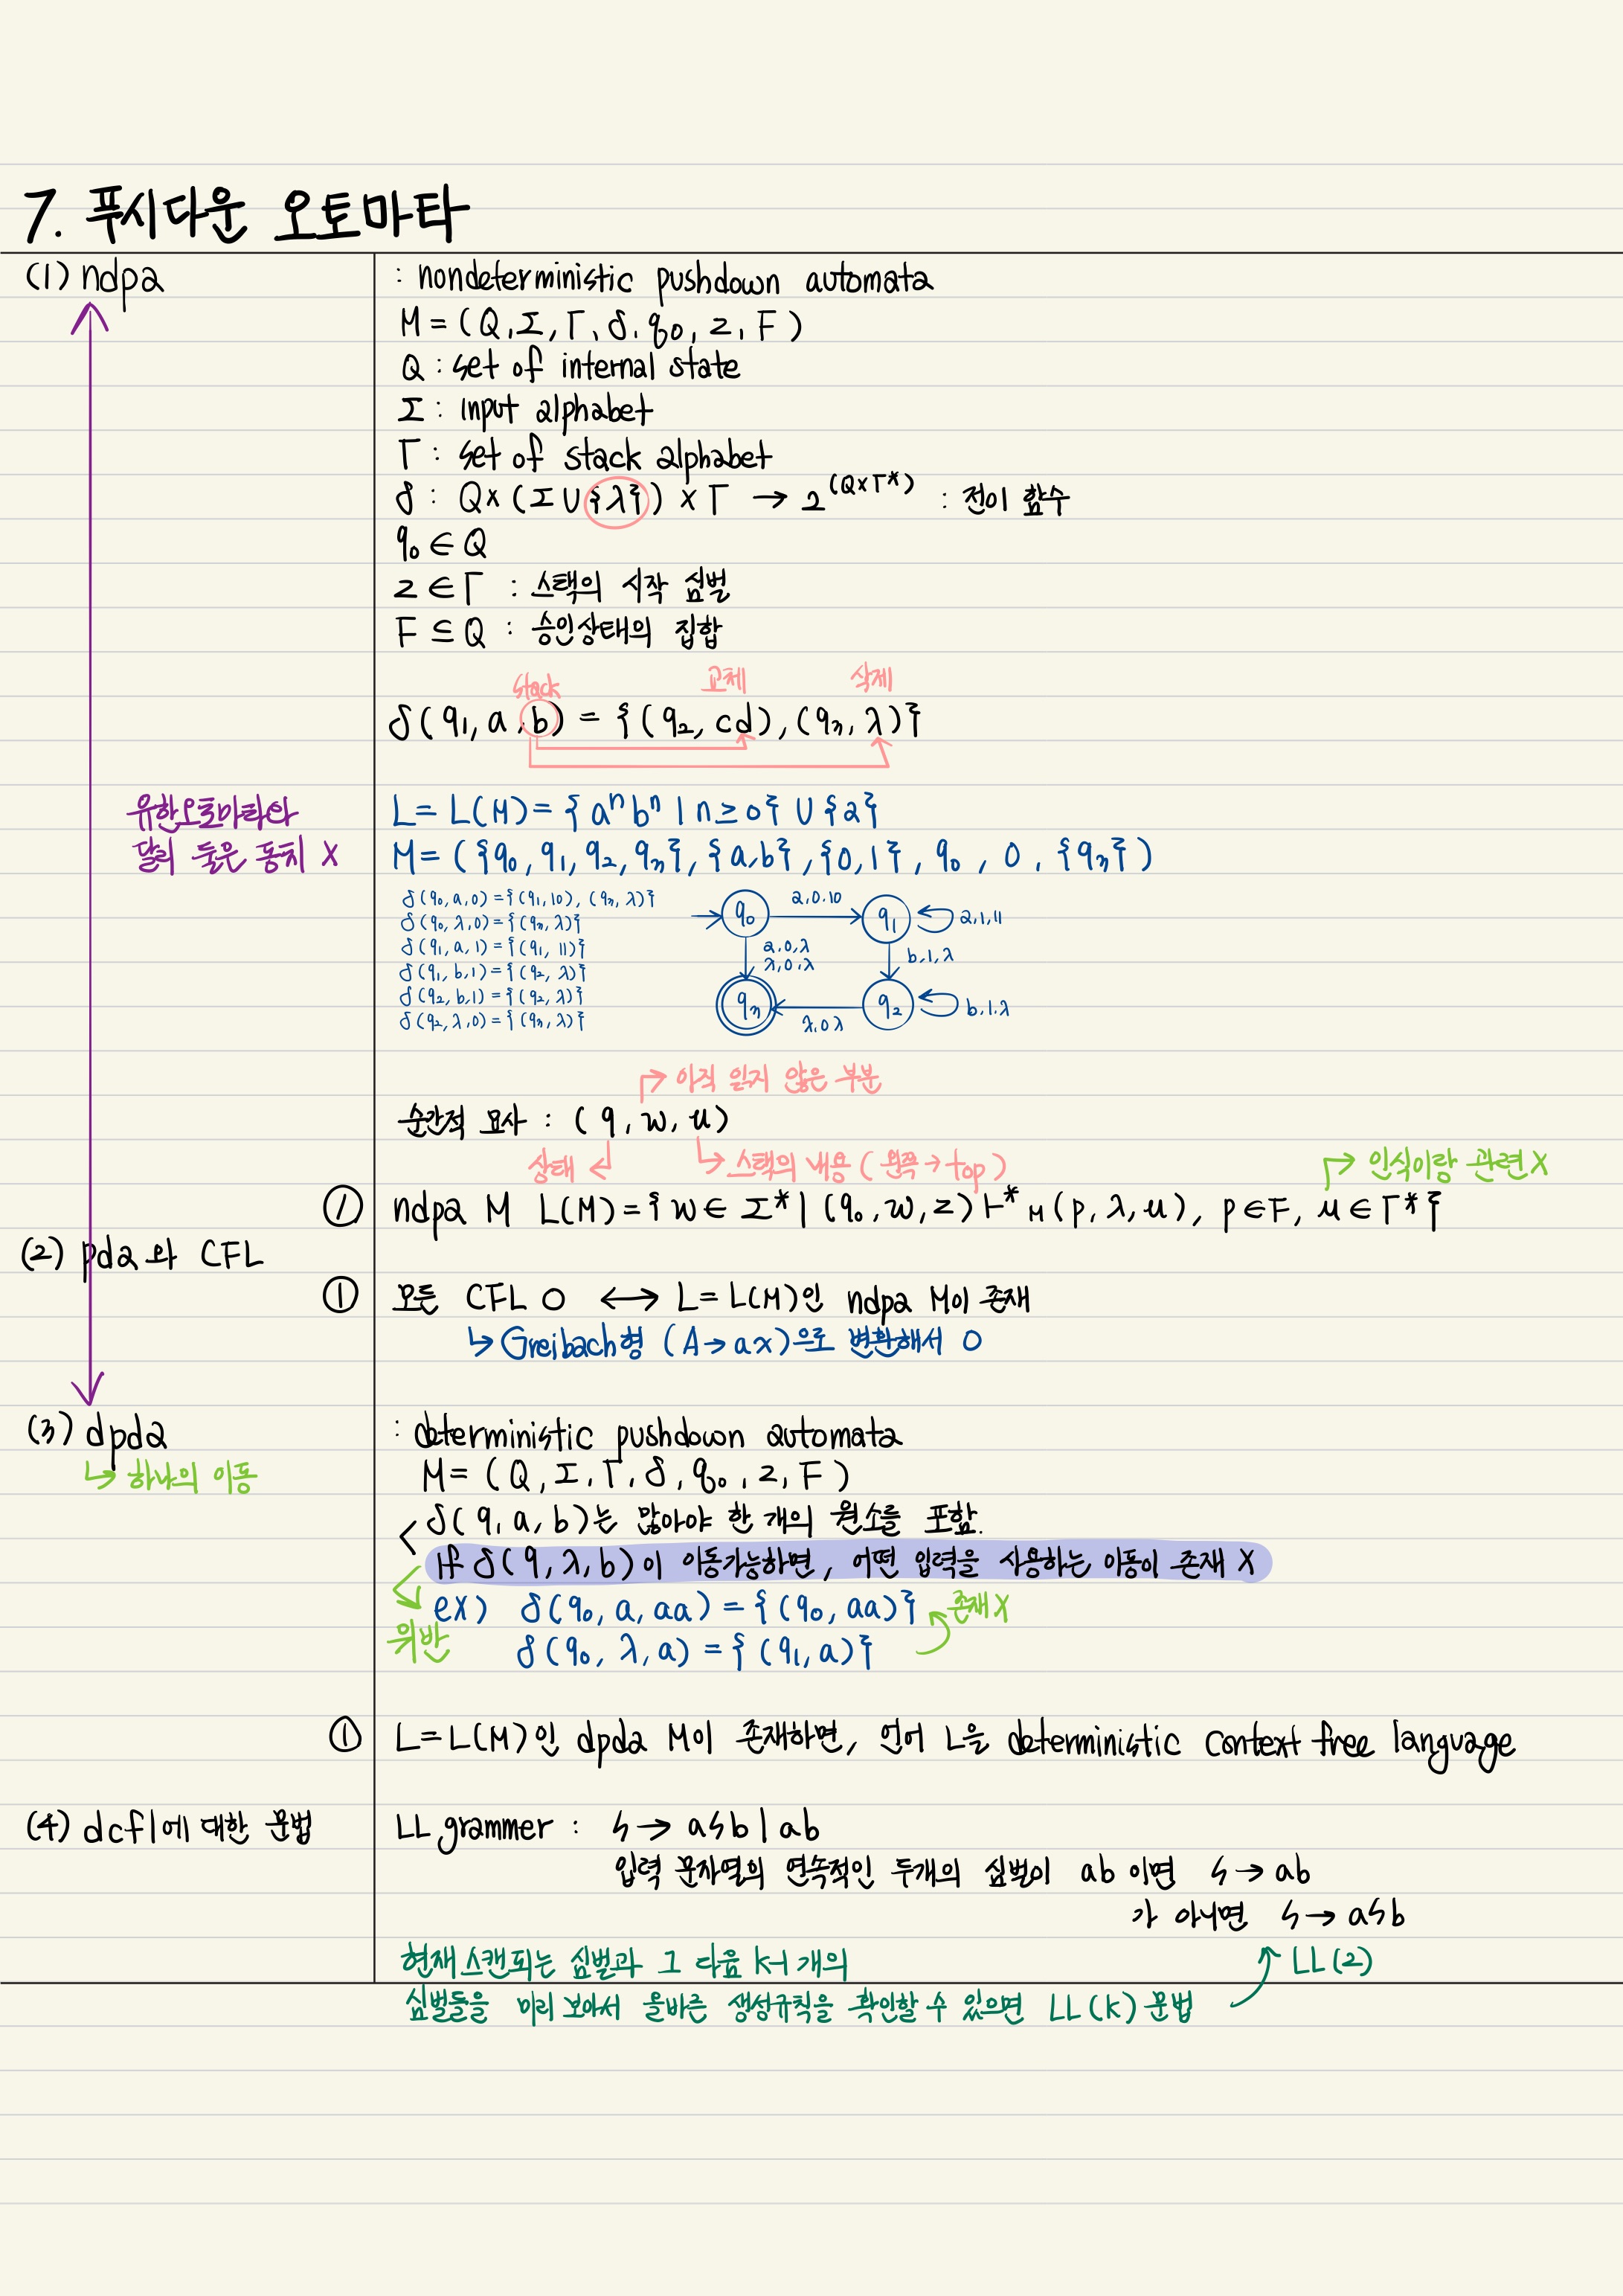 7. 푸시다운 오토마타
(1) ndpa
: nondeterministic pushdown automata
M = (Q, Σ, Γ, δ, q₀, z, F)
Q : set of internal state
Σ : input alphabet
Γ : set of stack alphabet
δ : Q×(Σ∪{λ})×Γ → 2^(Q×Γ*) : 전이 함수
q₀ ∈ Q
z ∈ Γ : 스택의 시작 심벌
F ⊆ Q : 승인상태의 집합
stack 교체 삭제
δ(q₁, a, b) = {(q₂, cd), (q₃, λ)}
유한오토마타와
달리 둘은 동치 X
L = L(M) = {aⁿbⁿ | n ≥ 0} ∪ {a}
M = ({q₀, q₁, q₂, q₃}, {a,b}, {0,1}, q₀, 0, {q₃})
δ(q₀, a, 0) = {(q₁, 10), (q₃, λ)}
δ(q₀, λ, 0) = {(q₃, λ)}
δ(q₁, a, 1) = {(q₁, 11)}
δ(q₁, b, 1) = {(q₂, λ)}
δ(q₂, b, 1) = {(q₂, λ)}
δ(q₂, λ, 0) = {(q₃, λ)}
q₀ a,0,10 q₁ a,1,11
a,0,λ
λ,0,λ
b,1,λ
q₃ λ,0λ q₂ b,1,λ
아직 읽지 않은 부분
순간적 묘사 : (q, w, u)
상태 스택의 내용 (왼쪽→top)
인식이랑 관련 X
① ndpa M L(M) = {w ∈ Σ* | (q₀, w, z) ⊢*M (p, λ, u), p ∈ F, u ∈ Γ*}
(2) pda와 CFL
① 모든 CFL O ↔ L = L(M)인 ndpa M이 존재
↳ Greibach형 (A→ax)으로 변환해서 O
(3) dpda
↳ 하나의 이동
: deterministic pushdown automata
M = (Q, Σ, Γ, δ, q₀, z, F)
δ(q, a, b)는 많아야 한 개의 원소를 포함.
if δ(q, λ, b)이 이동가능하면, 어떤 입력을 사용하는 이동이 존재 X
위반
ex) δ(q₀, a, aa) = {(q₀, aa)} 존재X
δ(q₀, λ, a) = {(q₁, a)}
① L=L(M)인 dpda M이 존재하면, 언어 L을 deterministic context free language
(4) dcfl에 대한 문법
LL grammer : S → aSb | ab
입력 문자열의 연속적인 두개의 심벌이 ab 이면 S → ab
가 아니면 S → aSb
현재 스캔되는 심벌과 그 다음 k-1 개의
LL(2)
심벌들을 미리 보아서 올바른 생성규칙을 확인할 수 있으면 LL(k) 문법